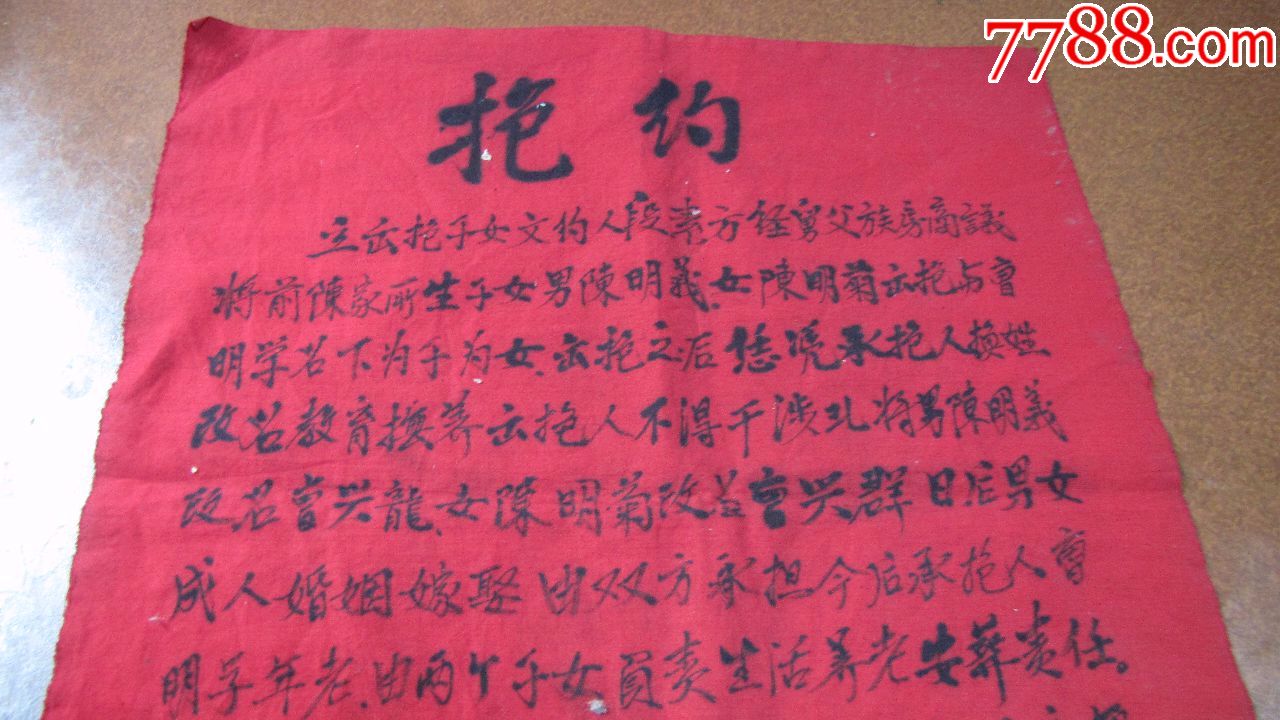 7788.com
抱约
立出抱子女文约人段素方经舅父族房商議
将前陳家所生子女男陳明義、女陳明菊出抱与曾
明学名下为子为女、出抱之后恁凭承抱人换姓
改名教育撫养出抱人不得干涉现将男陳明義
改名曾兴龍、女陳明菊改名曾兴群日后男女
成人婚姻嫁娶由双方承担今后承抱人曾
明学年老、由两个子女負责生活养老安葬责任。